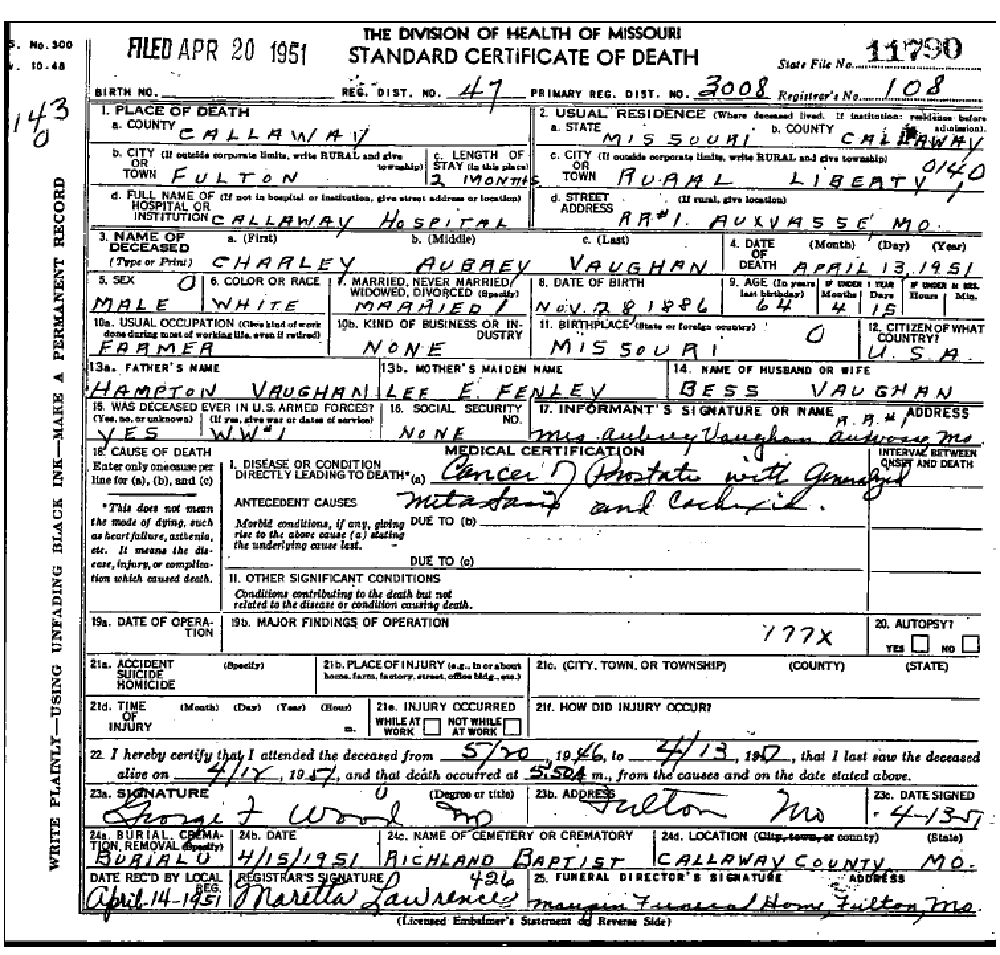 S. No. 300
v. 10-48
FILED APR 20 1951
THE DIVISION OF HEALTH OF MISSOURI
STANDARD CERTIFICATE OF DEATH
State File No. 11790
BIRTH NO. REG. DIST. NO. 47 PRIMARY REG. DIST. NO. 3008 Registrar's No. 108
143
0
WRITE PLAINLY—USING UNFADING BLACK INK—MAKE A PERMANENT RECORD
1. PLACE OF DEATH
a. COUNTY CALLAWAY
2. USUAL RESIDENCE (Where deceased lived. If institution: residence before admission).
a. STATE MISSOURI b. COUNTY CALLAWAY
b. CITY (If outside corporate limits, write RURAL and give township)
OR
TOWN FULTON
c. LENGTH OF STAY (in this place)
2 MONTHS
c. CITY (If outside corporate limits, write RURAL and give township)
OR
TOWN RURAL LIBERTY 0140
d. FULL NAME OF (If not in hospital or institution, give street address or location)
HOSPITAL OR
INSTITUTION CALLAWAY HOSPITAL
d. STREET (If rural, give location)
ADDRESS RR#1. AUXVASSE, MO.
3. NAME OF DECEASED
(Type or Print)
a. (First) b. (Middle) c. (Last)
CHARLEY AUBREY VAUGHAN
4. DATE OF DEATH (Month) (Day) (Year)
APRIL 13, 1951
5. SEX 0
MALE
6. COLOR OR RACE
WHITE
7. MARRIED, NEVER MARRIED, WIDOWED, DIVORCED (Specify)
MARRIED 1
8. DATE OF BIRTH
NOV. 28 1886
9. AGE (In years last birthday)
64
IF UNDER 1 YEAR
Months Days
4 15
IF UNDER 24 HRS.
Hours Min.
10a. USUAL OCCUPATION (Give kind of work done during most of working life, even if retired)
FARMER
10b. KIND OF BUSINESS OR INDUSTRY
NONE
11. BIRTHPLACE (State or foreign country)
MISSOURI 0
12. CITIZEN OF WHAT COUNTRY?
U.S.A.
13a. FATHER'S NAME
HAMPTON VAUGHAN
13b. MOTHER'S MAIDEN NAME
LEE E. FENLEY
14. NAME OF HUSBAND OR WIFE
BESS VAUGHAN
15. WAS DECEASED EVER IN U.S. ARMED FORCES?
(Yes, no, or unknown) (If yes, give war or dates of service)
YES W.W#1
16. SOCIAL SECURITY NO.
NONE
17. INFORMANT'S SIGNATURE OR NAME ADDRESS
R.R.#1
Mrs Aubrey Vaughan Auxvasse, Mo
18. CAUSE OF DEATH
Enter only one cause per line for (a), (b), and (c)
*This does not mean the mode of dying, such as heart failure, asthenia, etc. It means the disease, injury, or complication which caused death.
MEDICAL CERTIFICATION
INTERVAL BETWEEN ONSET AND DEATH
I. DISEASE OR CONDITION
DIRECTLY LEADING TO DEATH*(a) Cancer of Prostate with Generalized
ANTECEDENT CAUSES metastasis and Cachexia.
Morbid conditions, if any, giving rise to the above cause (a) stating the underlying cause last.
DUE TO (b)
DUE TO (c)
II. OTHER SIGNIFICANT CONDITIONS
Conditions contributing to the death but not
related to the disease or condition causing death.
19a. DATE OF OPERATION
19b. MAJOR FINDINGS OF OPERATION
177X
20. AUTOPSY?
YES NO
21a. ACCIDENT SUICIDE HOMICIDE (Specify)
21b. PLACE OF INJURY (e.g., in or about home, farm, factory, street, office bldg., etc.)
21c. (CITY, TOWN, OR TOWNSHIP) (COUNTY) (STATE)
21d. TIME OF INJURY (Month) (Day) (Year) (Hour) m.
21e. INJURY OCCURRED
WHILE AT WORK NOT WHILE AT WORK
21f. HOW DID INJURY OCCUR?
22. I hereby certify that I attended the deceased from 5/20, 1946, to 4/13, 1951, that I last saw the deceased
alive on 4/12, 1951, and that death occurred at 5:50A m., from the causes and on the date stated above.
23a. SIGNATURE (Degree or title)
George F Wood MD
23b. ADDRESS
Fulton Mo
23c. DATE SIGNED
4-13-51
24a. BURIAL, CREMATION, REMOVAL (Specify)
BURIAL 0
24b. DATE
4/15/1951
24c. NAME OF CEMETERY OR CREMATORY
RICHLAND BAPTIST
24d. LOCATION (City, town, or county) (State)
CALLAWAY COUNTY MO.
DATE REC'D BY LOCAL REG.
April-14-1951
REGISTRAR'S SIGNATURE 426
Maretta Lawrence
25. FUNERAL DIRECTOR'S SIGNATURE ADDRESS
Maupin Funeral Home, Fulton, Mo.
(Licensed Embalmer's Statement on Reverse Side)